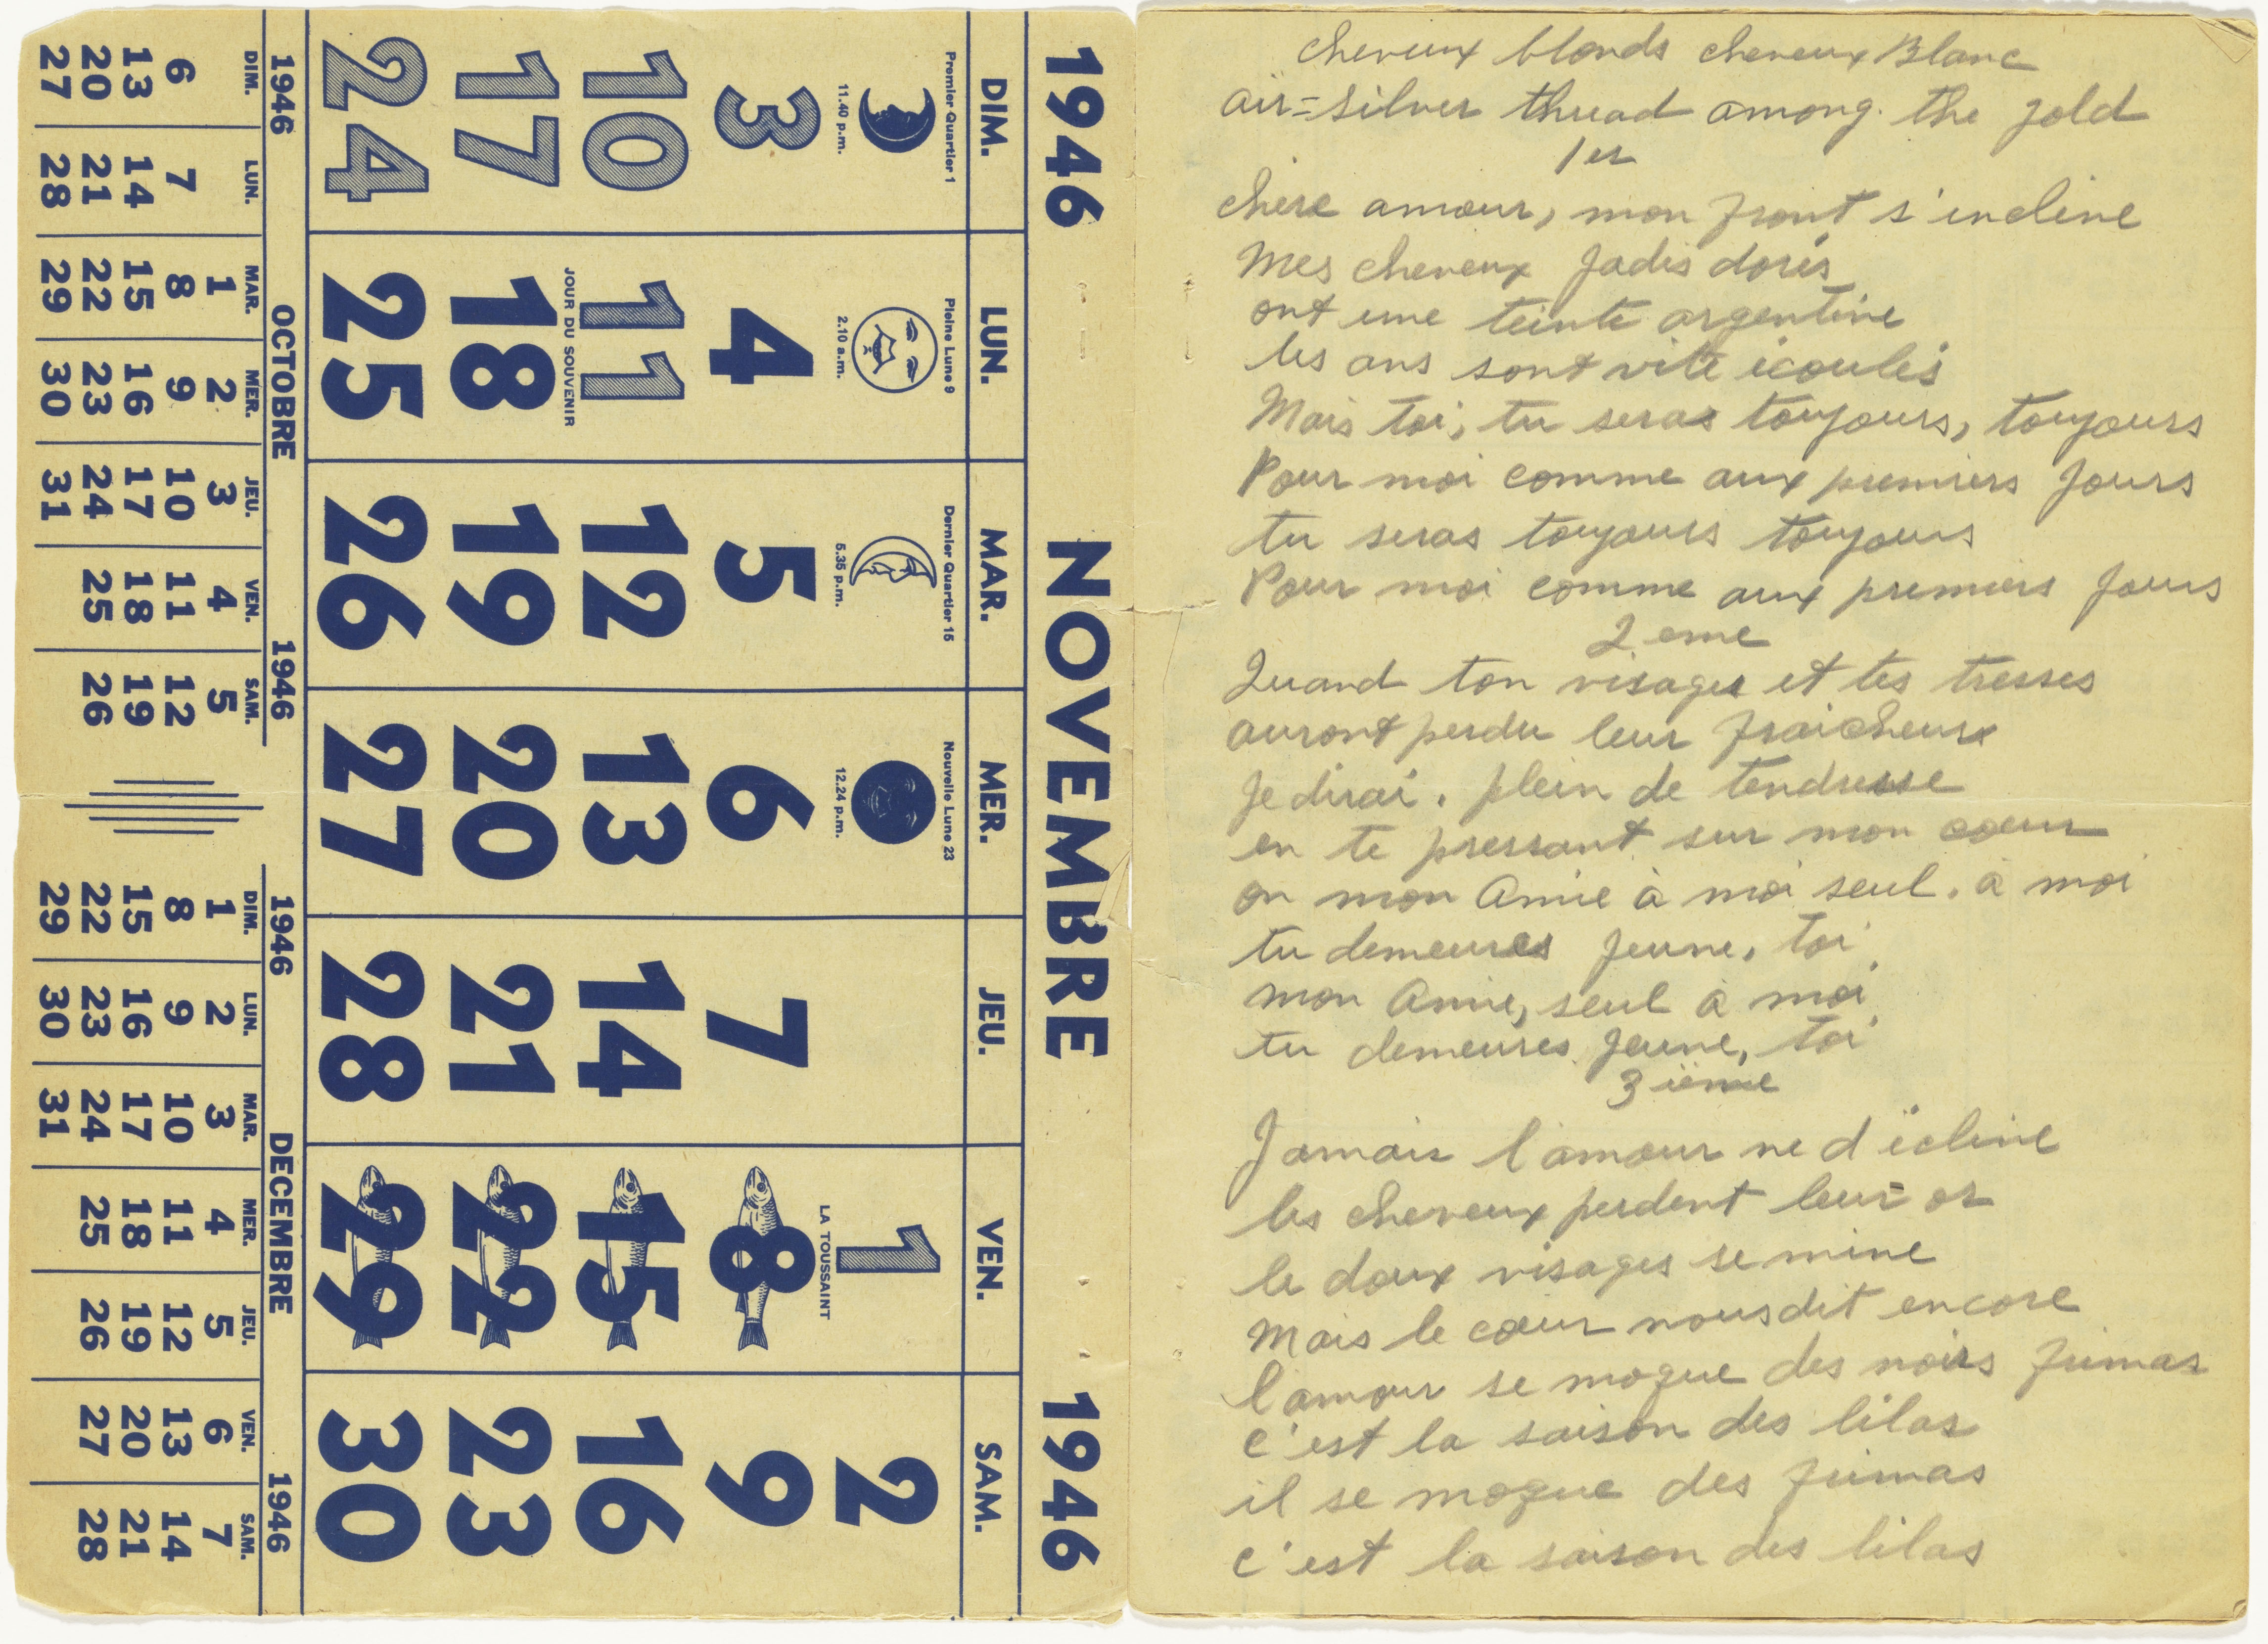 1946 NOVEMBRE 1946
DIM. LUN. MAR. MER. JEU. VEN. SAM.
Premier Quartier 1 Pleine Lune 9 Dernier Quartier 15 Nouvelle Lune 23
1 2
11.40 p.m. 2.10 a.m. 5.35 p.m. 12.24 p.m.
LA TOUSSAINT
3 4 5 6 7 8 9
10 11 12 13 14 15 16
JOUR DU SOUVENIR
17 18 19 20 21 22 23
24 25 26 27 28 29 30
1946 OCTOBRE 1946
DIM. LUN. MAR. MER. JEU. VEN. SAM.
1 2 3 4 5
6 7 8 9 10 11 12
13 14 15 16 17 18 19
20 21 22 23 24 25 26
27 28 29 30 31
1946 DECEMBRE 1946
DIM. LUN. MAR. MER. JEU. VEN. SAM.
1 2 3 4 5 6 7
8 9 10 11 12 13 14
15 16 17 18 19 20 21
22 23 24 25 26 27 28
29 30 31
cheveux blonds cheveux Blanc
air=silver thread among. the gold
1er
chere amour, mon front s'incline
Mes cheveux jadis dorés
ont une teinte argentine
les ans sont vite écoulés
Mais toi, tu seras toujours, toujours
Pour moi comme aux premiers jours
tu seras toujours toujours
Pour moi comme aux premiers jours
2 eme
Quand ton visages et tes tresses
auront perdu leur fraicheurs
je dirai. plein de tendresse
en te pressant sur mon coeur
on mon Amie à moi seul. à moi
tu demeures jeune, toi
mon Amie, seul à moi
tu demeures jeune, toi
3 ième
Jamais l'amour ne d'écline
les cheveux perdent leur or
le doux visages se mine
Mais le coeur nous dit encore
l'amour se moque des noirs frimas
c'est la saison des lilas
il se moque des frimas
c'est la saison des lilas